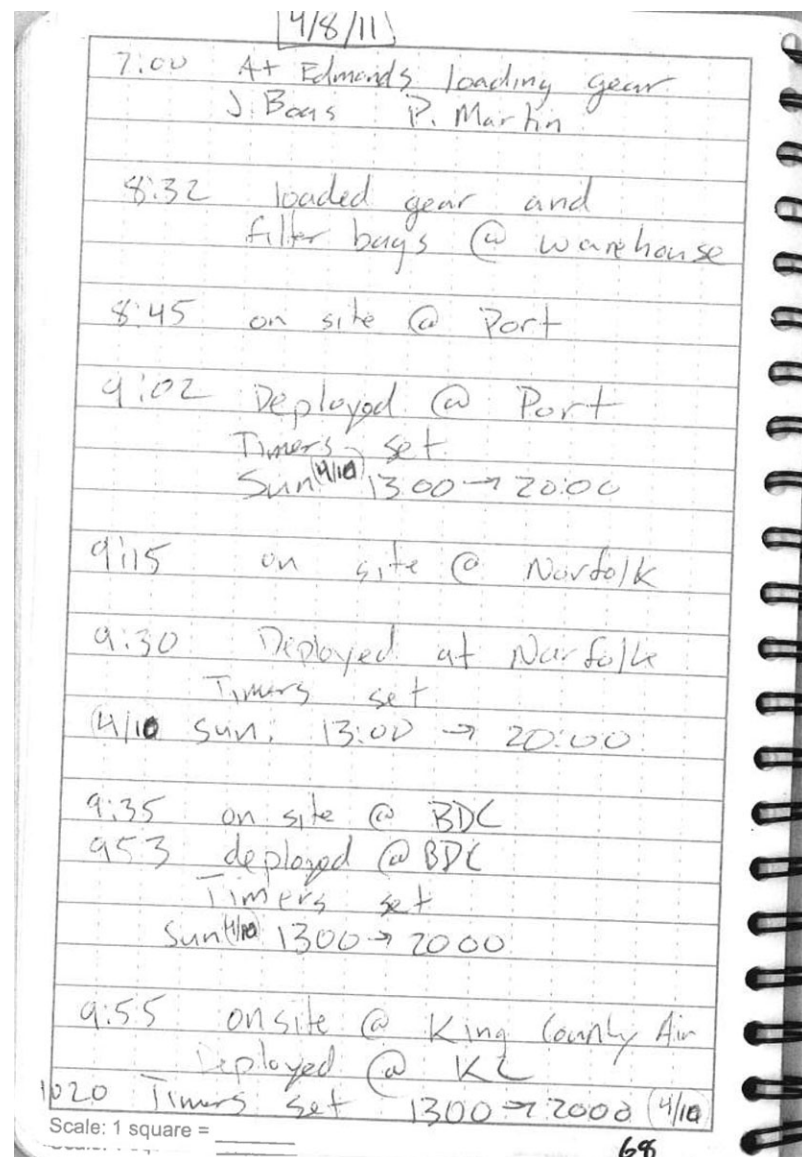 4/8/11
7:00 At Edmonds loading gear
J. Boas P. Martin
8:32 loaded gear and
filter bags @ warehouse
8:45 on site @ Port
9:02 Deployed @ Port
Timers set
Sun (4/10) 13:00 → 20:00
9:15 on site @ Norfolk
9:30 Deployed at Norfolk
Timers set
(4/10 Sun: 13:00 → 20:00
9:35 on site @ BDC
953 deployed @ BDC
Timers set
Sun (4/10) 1300 → 2000
9:55 onsite @ King County Air
Deployed @ KC
1020 Timers set 1300 → 2000 (4/10)
Scale: 1 square =
68